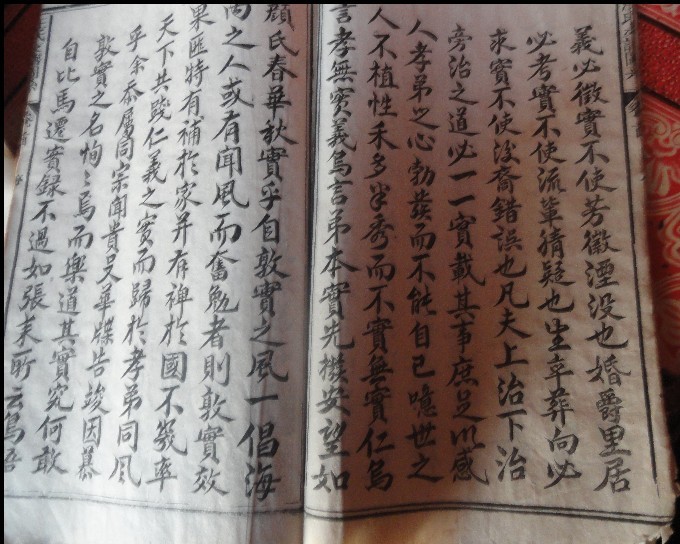 義必徵實不使芳徽湮没也婚爵里居
必考實不使流輩猜疑也生卒葬向必
求實不使後裔錯誤也凡夫上治下治
旁治之道必一一實載其事庶足以感
人孝弟之心勃發而不能自已噫世之
人不植性禾多半秀而不實無實仁為
言孝無實義為言弟本實先撥安望如
顏氏春華秋實乎自敦實之風一倡海
內之人或有聞風而奮勉者則敦實效
果匪特有補於家并有裨於國不幾率
天下共踐仁義之實而歸於孝弟同風
乎余忝屬同宗聞貴兄華牒告竣因慕
敦實之名恂〻焉而樂道其實究何敢
自比馬遷實錄不過如張耒所云為吾